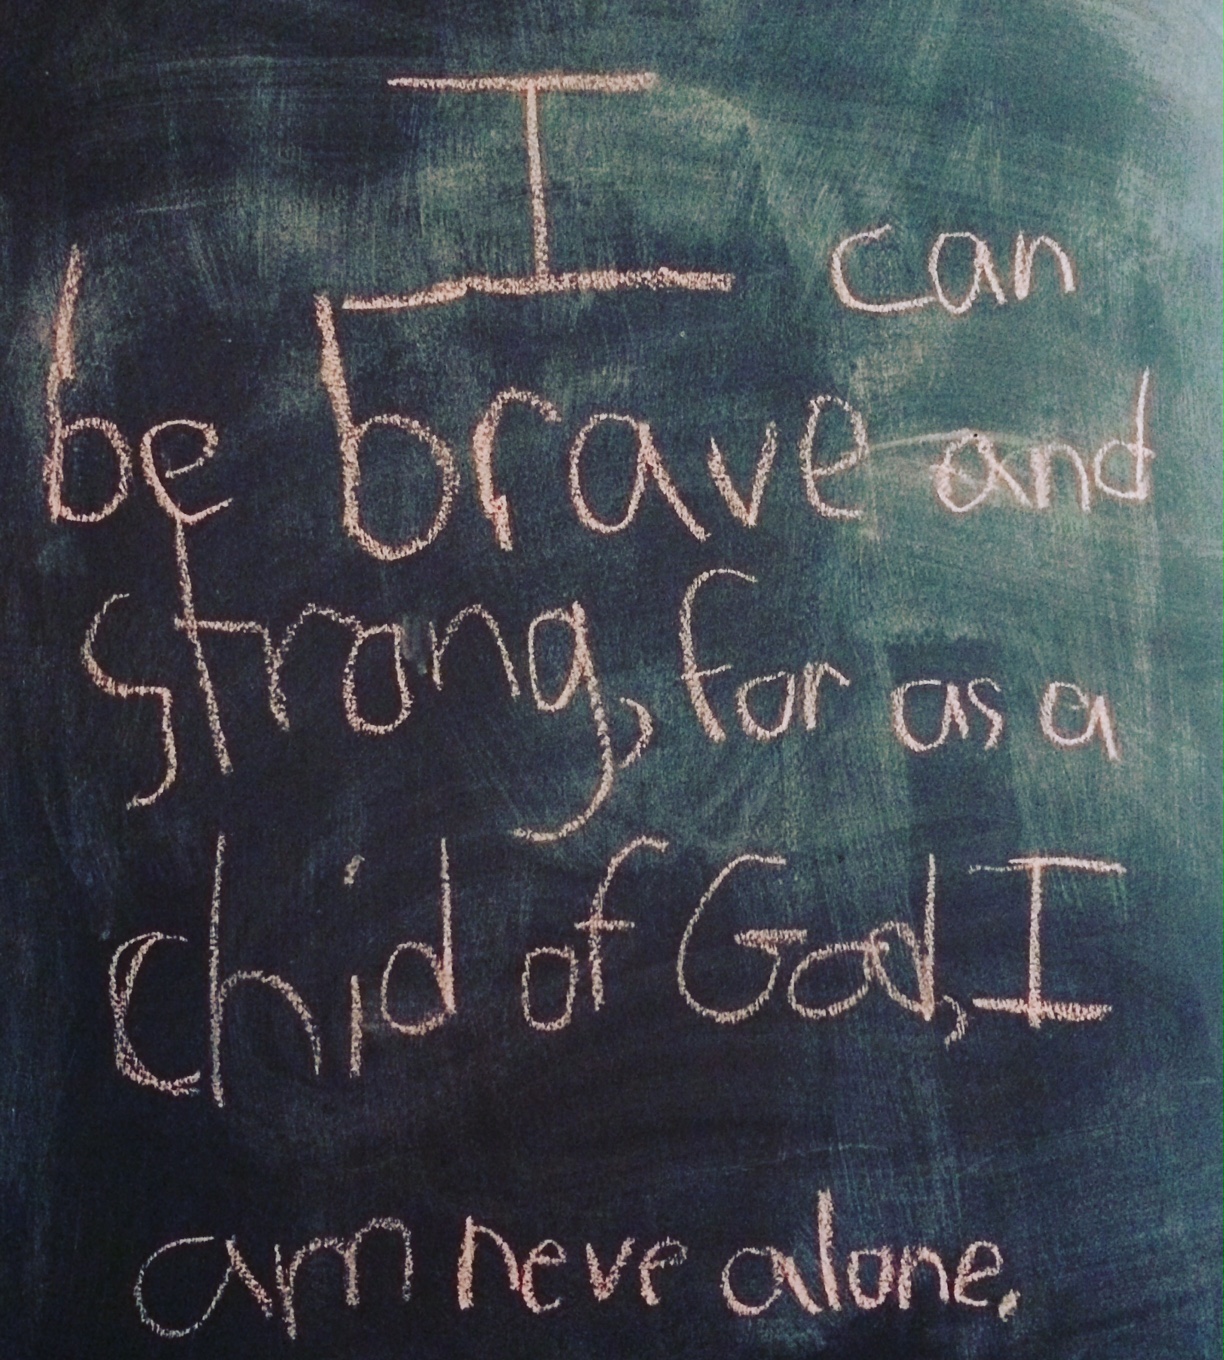 I can
be brave and
strong, for as a
chid of God, I
am neve alone.